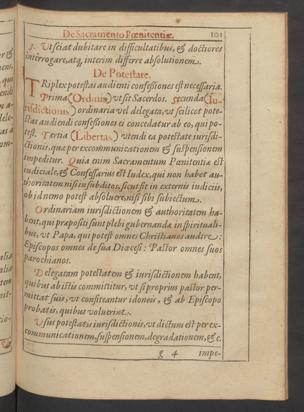 De Sacramento Pœnitentiæ. 101
5. Vt sciat dubitare in difficultatibus, & doctores
interrogare, atq; interim differre absolutionem.
De Potestate.
TRiplex potestas audienti confessiones est necessaria.
Prima (Ordinis) vt sit Sacerdos. Secunda (Iu-
risdictionis) ordinaria vel delegata, vt scilicet pote-
stas audiendi confessiones ei concedatur ab eo, qui po-
test. Tertia (Libertas) vtendi ea potestate iurisdi-
ctionis, quæ per excommunicationem & suspensionem
impeditur. Quia enim Sacramentum Pœnitentia est
iudiciale, & Confessarius est Iudex, qui non habet au-
thoritatem nisi in subditos, sicut fit in externis iudiciis,
ob id nemo potest absoluere, nisi sibi subiectum.
Ordinariam iurisdictionem & authoritatem ha-
bent, qui præpositi sunt plebi gubernanda in spirituali-
bus, vt Papa, qui potest omnes Christianos audire:
Episcopus omnes de sua Diœcesi: Pastor omnes suos
parochianos.
Delegatam potestatem & iurisdictionem habent,
quibus ab istis committitur, vt si proprius pastor per-
mittat suis, vt confiteantur idoneis, & ab Episcopo
probatis, quibus voluerint.
Vsus potestatis iurisdictionis, vt dictum est per ex-
communicationem, suspensionem, degradationem, & c.
g 4 impe-